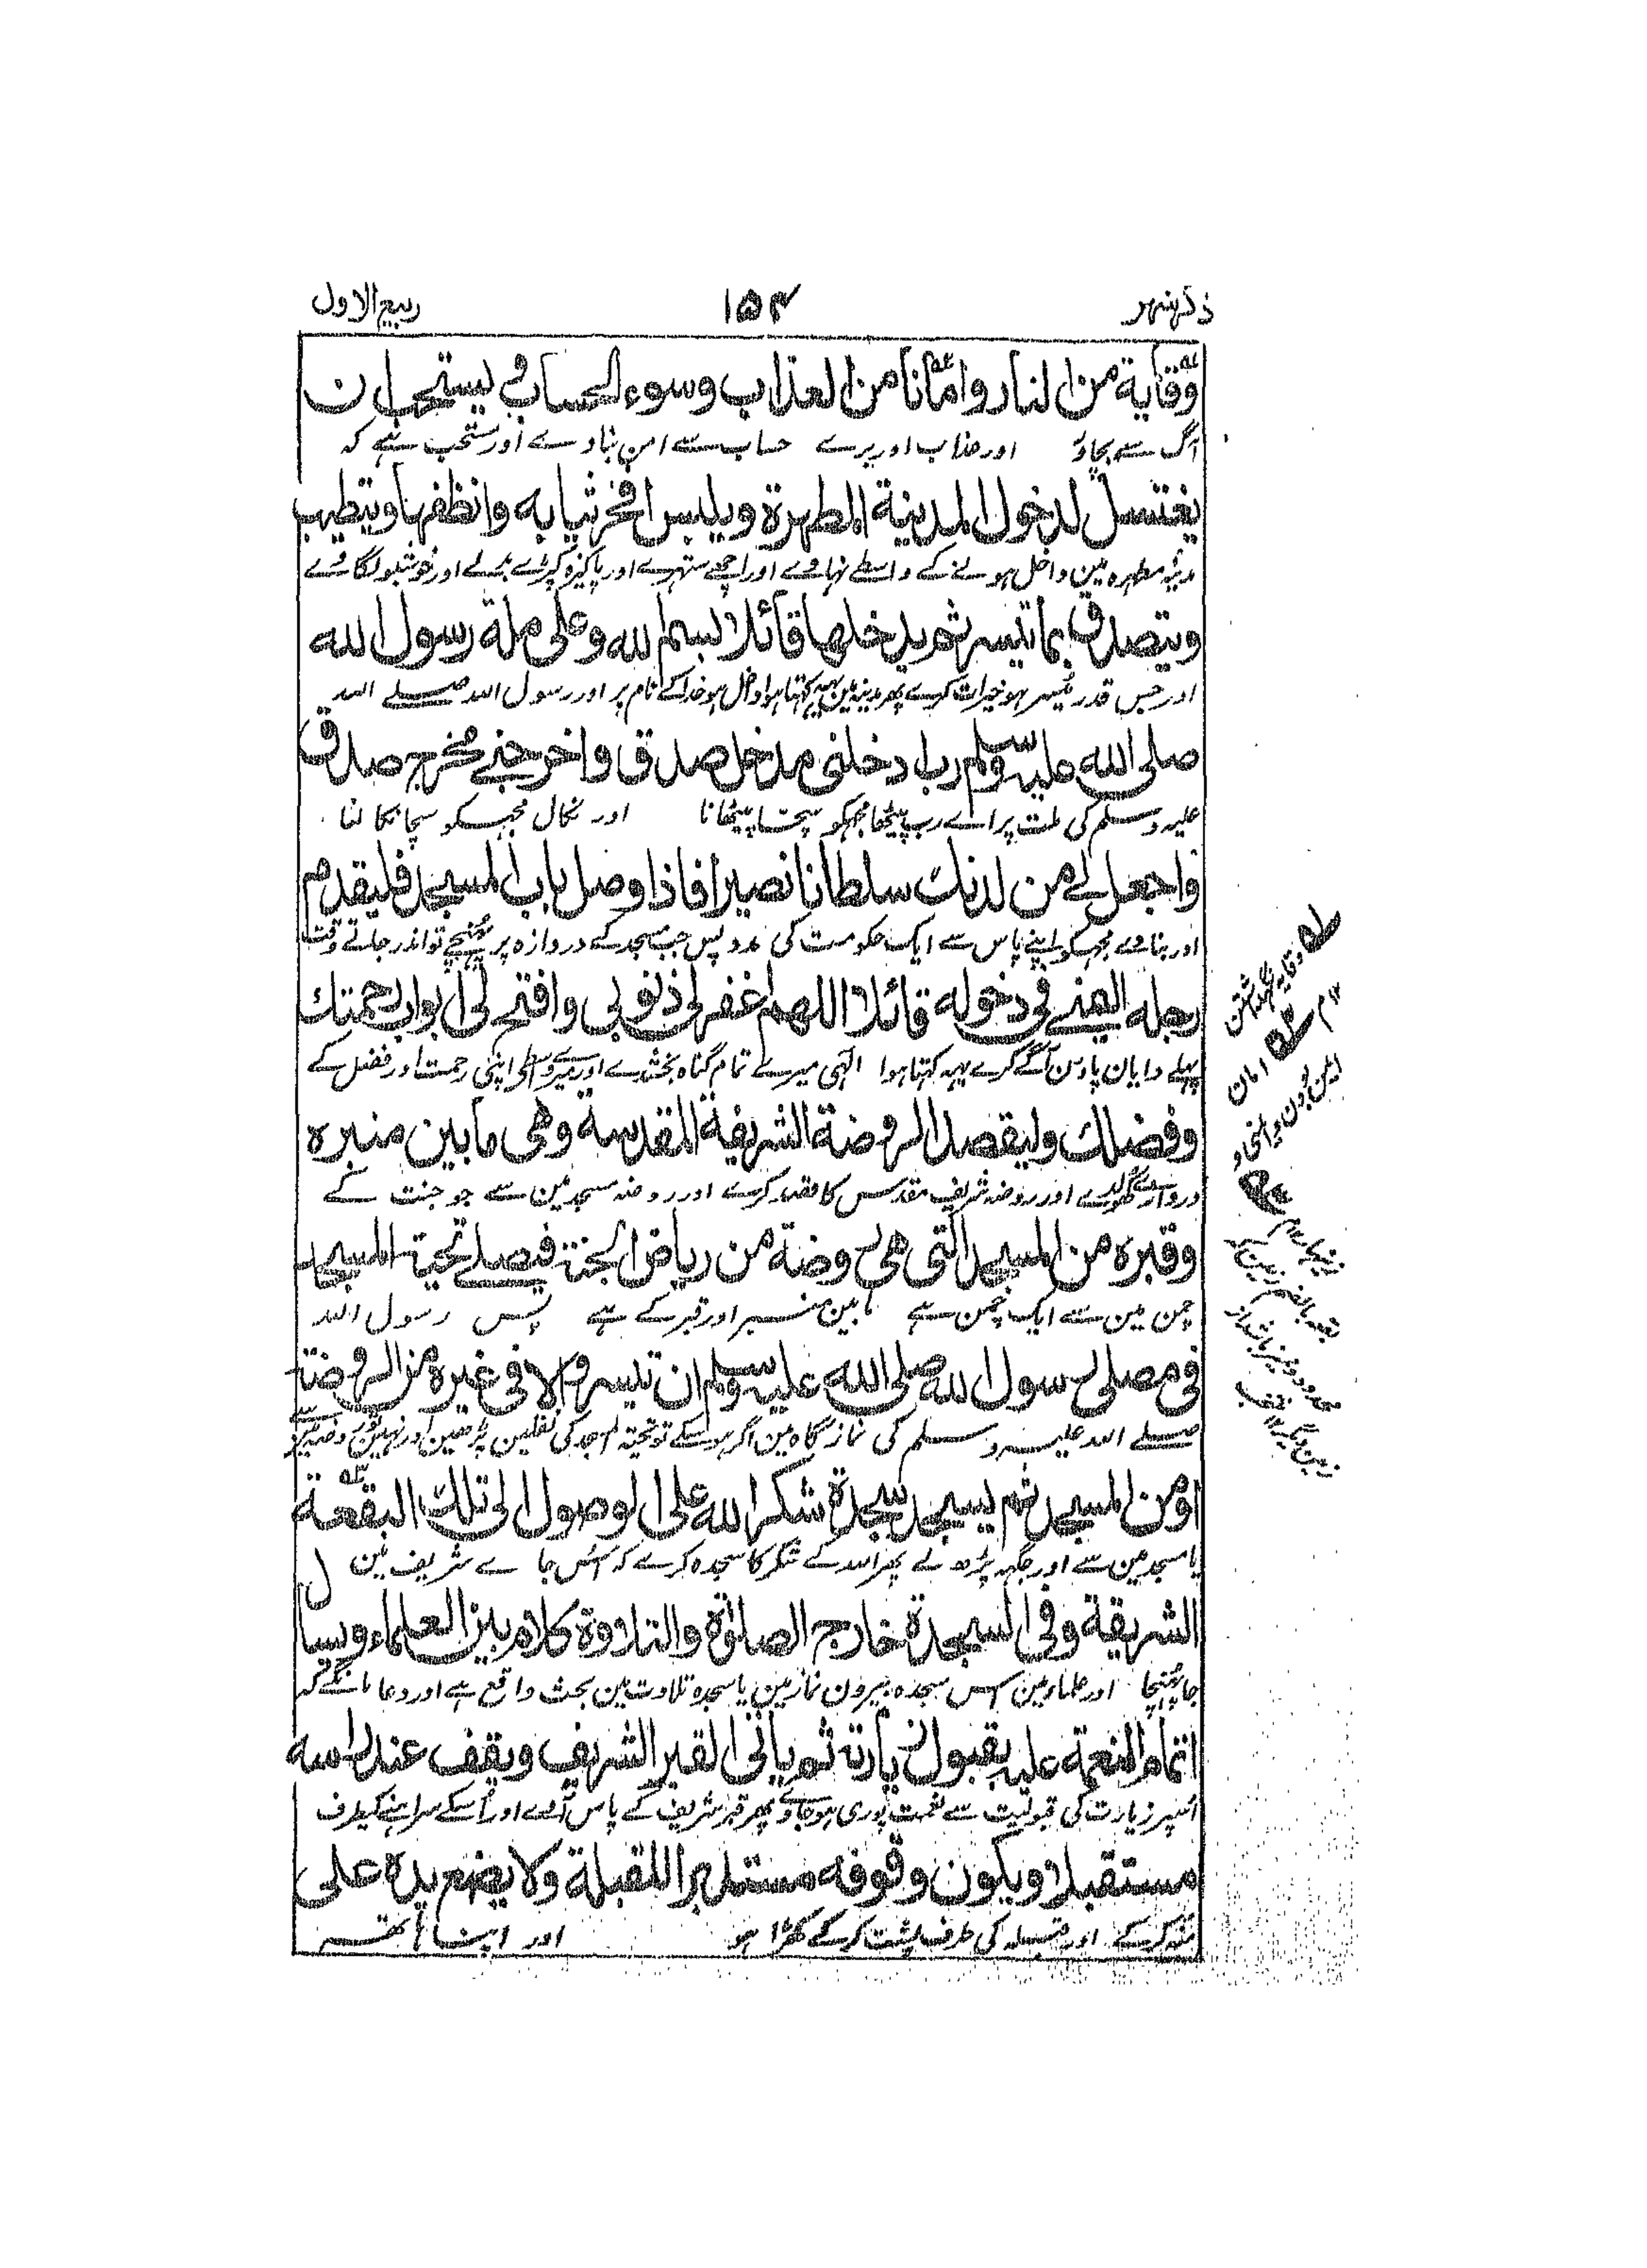 ذکر شهر ۱۵۴ ربیع الاول
وقایة من النار وامانا من العذاب وسوء الحساب ویستحب ان
آگ سے بچاؤ اور عذاب اور برے حساب سے امن بناوے اور مستحب ہے کہ
یغتسل لدخول المدینة المطهرة ویلبس افخر ثیابه وانظفها ویتطیب
مدینہ مطہرہ مین داخل ہونے کے واسطے نہاوے اور اچھے ستھرے اور پاکیزہ کپڑے بدلے اور خوشبو لگاوے
ویتصدق بما تیسر ثم یدخلها قائلا بسم الله وعلی ملة رسول الله
اور جس قدر میسر ہو خیرات کرے پھر مدینہ مین یہہ کہتا ہوا داخل ہو خدا کے نام پر اور رسول اللہ صلے اللہ
صلی الله علیه وسلم رب ادخلنی مدخل صدق واخرجنے مخرج صدق
علیہ وسلم کی ملت پر اے رب پیٹھا مجھکو سچا پیٹھانا اور نکال مجھکو سچا نکالنا
واجعل لے من لدنک سلطانا نصیرا فاذا وصل باب المسجد فلیقدم
اور بناوے مجھکو اپنے پاس سے ایک حکومت کی مدد پس جب مسجد کے دروازہ پر پہنچے تو اندر جاتے وقت
رجله الیمنے فی دخوله قائلا اللهم اغفر لی ذنوبی وافتح لی ابواب رحمتک
پہلے دایان پاؤن آگے کرے یہہ کہتا ہوا الٰہی میرے تمام گناہ بخشدے اور میرے واسطے اپنی رحمت اور فضل کے
وفضلک ولیقصد الروضة الشریفة المقدسة وهی ما بین منبره
دروازے کھولدے اور روضہ شریف مقدس کا قصد کرے اور روضہ مسجد مین سے جو جنت کے
وقبره من المسجد التی هی روضة من ریاض الجنة فیصلے تحیة المسجد
چمن مین سے ایک چمن ہے مابین منبر اور قبر کے ہے پس رسول اللہ
فی مصلی رسول الله صلی الله علیه وسلم ان تیسر والا فی غیره من الروضة
صلے اللہ علیہ وسلم کی نماز گاہ مین اگر ہو سکے تو تحیۃ المسجد کی نفلین پڑھین اور نہین تو روضہ مین سے
او من المسجد ثم یسجد سجدة شکرا لله علی الوصول الی تلک البقعة
یا مسجد مین سے اور جگہہ پڑھ لے پھر اللہ کے شکر کا سجدہ کرے کہ اس جاے شریف مین
الشریفة وفی السجدة خارج الصلوٰة والتلاوة کلام بین العلماء ویسأل
جا پہنچا اور علماء مین اس سجدہ بیرون نماز مین یا سجدہ تلاوت مین بحث واقع ہے اور دعا مانگے کہ
اتمام النعمة علیه بقبول زیارته ثم یاتی القبر الشریف ویقف عند راسه
اسپر زیارت کی قبولیت سے نعمت پوری ہو جاوے پھر قبر شریف کے پاس آوے اور اُسکے سراہنے کیطرف
مستقبلا ویکون وقوفه مستدبرا للقبلة ولا یضع یده علی
منہ کر کے اور قبلہ کی طرف پشت کر کے کھڑا ہو اور اپنا ہاتھہ
وقایہ نگہداشتن
۱۲م امان